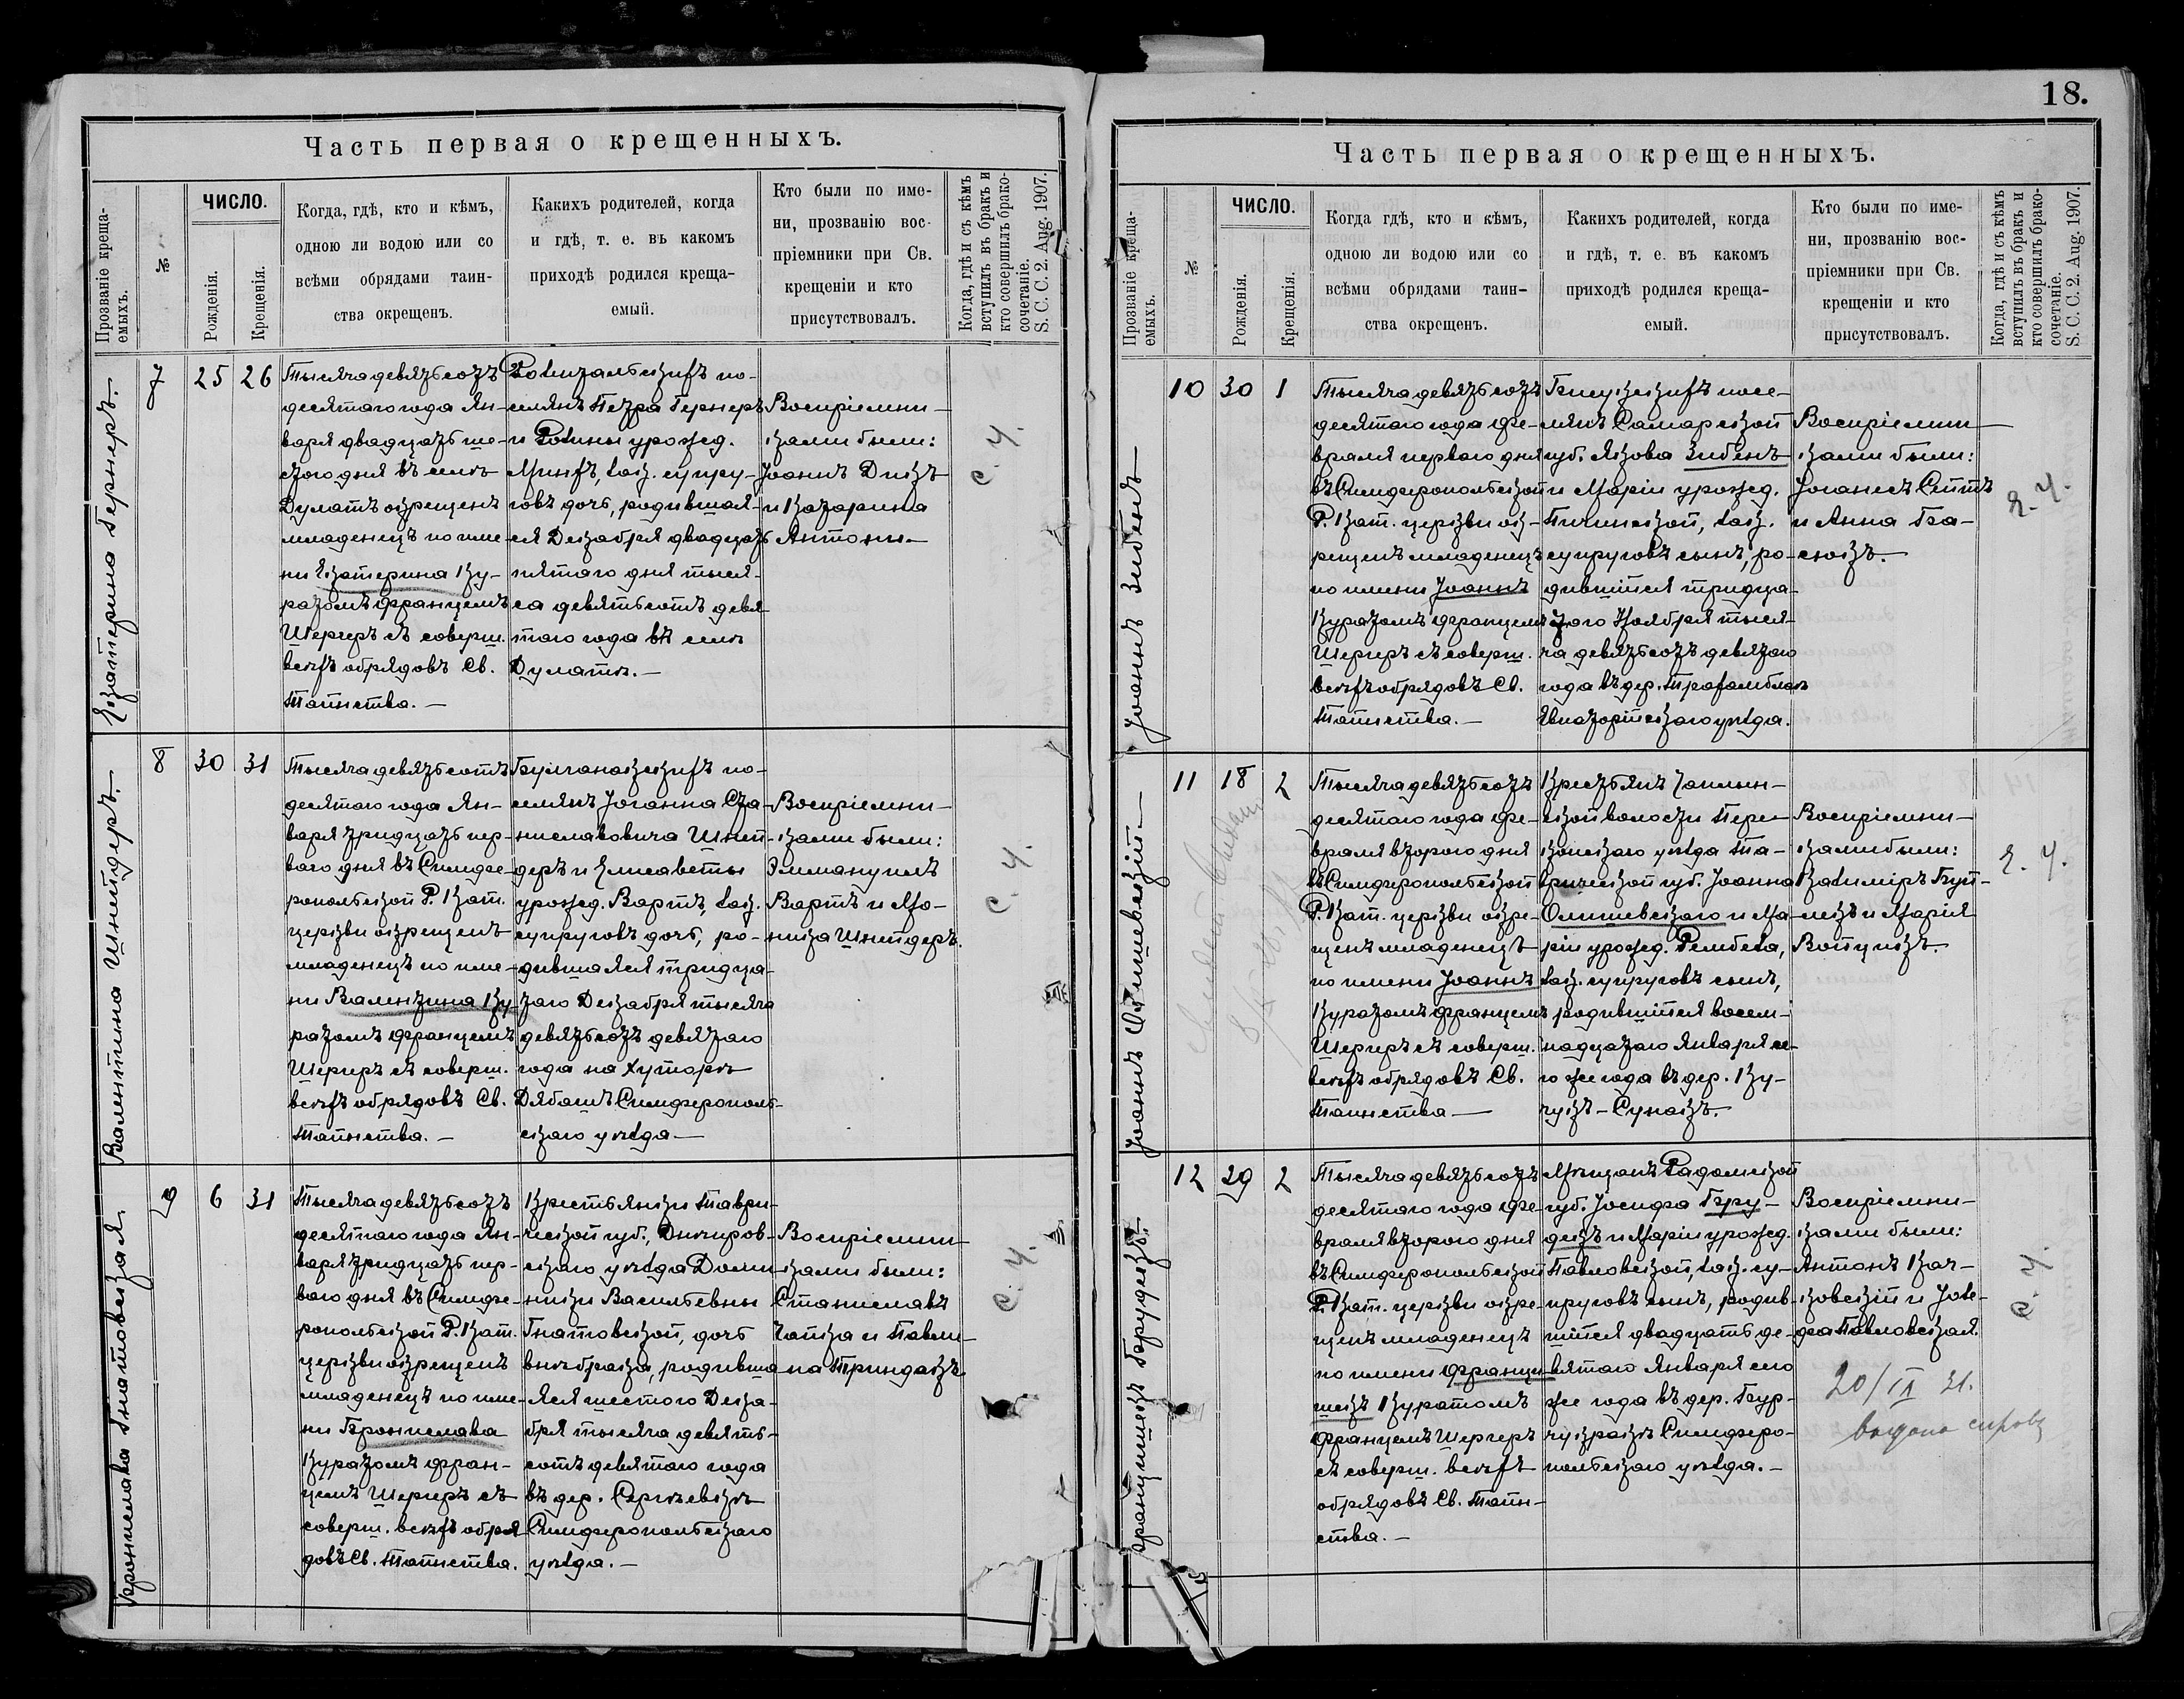 18.
Часть первая о крещенныхъ.
Прозваніе креща-
емыхъ.
№
ЧИСЛО.
Рожденія.
Крещенія.
Когда, гдѣ, кто и кѣмъ,
одною ли водою или со
всѣми обрядами таин-
ства окрещенъ.
Какихъ родителей, когда
и гдѣ, т. е. въ какомъ
приходѣ родился креща-
емый.
Кто были по име-
ни, прозванію вос-
пріемники при Св.
крещеніи и кто
присутствовалъ.
Когда, гдѣ и съ кѣмъ
вступилъ въ бракъ и
кто совершилъ брако-
сочетаніе.
S. C. C. 2. Aug. 1907.
Екатерина Гернеръ.
7
25
26
Тысяча девятьсотъ
десятаго года Ян-
варя двадцать ше-
стого дня въ селѣ
Дулатъ окрещенъ
младенецъ по име-
ни Екатерина Ку-
ратомъ Францемъ
Шергеръ съ соверш.
всѣхъ обрядовъ Св.
Таинства. —
по-
селянъ Петра Гернеръ
и урожд.
зак. супру-
говъ дочь, родившая-
ся Декабря двадцать
пятаго дня тыся-
ча девятьсотъ девя-
таго года въ селѣ
Дулатъ. —
Воспріемни-
ками были:
Іоаннъ Дикъ
и Катарина
Антони. —
с. ч.
Валентина Шнейдеръ.
8
30
31
Тысяча девятьсотъ
десятаго года Ян-
варя тридцать пер-
ваго дня въ Симфе-
ропольской Р. Кат.
церкви окрещенъ
младенецъ по име-
ни Валентина Ку-
ратомъ Францемъ
Шергеръ съ соверш.
всѣхъ обрядовъ Св.
Таинства. —
по-
селянъ Іоганна Ста-
ниславовича Шней-
деръ и Елисаветы
урожд. Вартъ, зак.
супруговъ дочь, ро-
дившаяся тридца-
таго Декабря тысяча
девятьсотъ девятаго
года на хуторѣ
Дябашъ Симферополь-
скаго уѣзда —
Воспріемни-
ками были:
Эммануилъ
Вартъ и Мо-
ника Шнейдеръ.
с. ч.
Брониславa Гнатовская.
9
6
31
Тысяча девятьсотъ
десятаго года Ян-
варя тридцать пер-
ваго дня въ Симфе-
ропольской Р. Кат.
церкви окрещенъ
младенецъ по име-
ни Брониславa
Куратомъ Фран-
цемъ Шергеръ съ
соверш. всѣхъ обря-
довъ Св. Таинства.
Крестьянки Таври-
ческой губ., Днѣпров-
скаго уѣзда Доми-
ники Васильевны
Гнатовской, дочь
внѣбрака, родивша-
яся шестого Дека-
бря тысяча девять-
сотъ девятаго года
въ дер. Сергѣевкѣ
Симферопольскаго
уѣзда. —
Воспріемни-
ками были:
Станиславъ
Чапка и Павли-
на Триндакъ.
с. ч.
Часть первая о крещенныхъ.
Прозваніе креща-
емыхъ.
№
ЧИСЛО.
Рожденія.
Крещенія.
Когда гдѣ, кто и кѣмъ,
одною ли водою или со
всѣми обрядами таин-
ства окрещенъ.
Какихъ родителей, когда
и гдѣ, т. е. въ какомъ
приходѣ родился креща-
емый.
Кто были по име-
ни, прозванію вос-
пріемники при Св.
крещеніи и кто
присутствовалъ.
Когда, гдѣ и съ кѣмъ
вступилъ въ бракъ и
кто совершилъ брако-
сочетаніе.
S. C. C. 2. Aug. 1907.
Іоаннъ Зибенъ —
10
30
1
Тысяча девятьсотъ
десятаго года Фе-
враля перваго дня
въ Симферопольской
Р. Кат. церкви ок-
рещенъ младенецъ
по имени Іоаннъ
Куратомъ Францемъ
Шергеръ съ соверш.
всѣхъ обрядовъ Св.
Таинства. —
посе-
лянъ Самарской
губ. Якова Зибенъ
и Маріи урожд.
зак.
супруговъ сынъ, ро-
дившійся тридца-
таго Ноября тыся-
ча девятьсотъ девятаго
года въ дер.
Евпаторійскаго уѣзда.
Воспріемни-
ками были:
Іоганесъ Смитъ
и Анна Га-
сюкъ. —
с. ч.
Іоаннъ Олишевскій —
11
18
2
Тысяча девятьсотъ
десятаго года Фе-
враля второго дня
въ Симферопольской
Р. Кат. церкви окре-
щенъ младенецъ
по имени Іоаннъ
Куратомъ Францемъ
Шергеръ съ соверш.
всѣхъ обрядовъ Св.
Таинства —
Крестьянъ Чаплин-
ской волости Пере-
копскаго уѣзда Та-
врической губ. Іоанна
Олишевскаго и Ма-
ріи урожд. Рембеза,
зак. супруговъ сынъ,
родившійся восем-
надцатаго Января се-
го же года въ дер. Ку-
чукъ-Сунакъ. —
Воспріемни-
ками были:
Казиміръ Буй-
лекъ и Марія
Войцикъ. —
с. ч.
Францишекъ Брудекъ. —
12
29
2
Тысяча девятьсотъ
десятаго года Фе-
враля второго дня
въ Симферопольской
Р. Кат. церкви окре-
щенъ младенецъ
по имени Франци-
шекъ Куратомъ
Францемъ Шергеръ
съ соверш. всѣхъ
обрядовъ Св. Таин-
ства. —
Мѣщанъ Радомской
губ. Іосифа Бру-
декъ и Маріи урожд.
Павловской, зак. су-
пруговъ сынъ, родив-
шійся двадцать де-
вятаго Января сего
же года въ дер. Бур-
чукракъ Симферо-
польскаго уѣзда. —
Воспріемни-
ками были:
Антонъ Кач-
ковскій и Юзе-
фа Павловская.
20/IX 31.
выдана
с. ч.